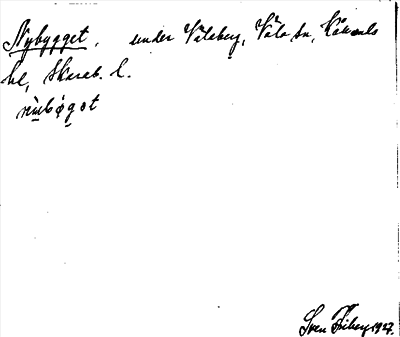 Nybygget, under Våleberg, Våla sn, Kåkinds
hd, Skarab. l.
nübøgot
Sven Friberg 1927.